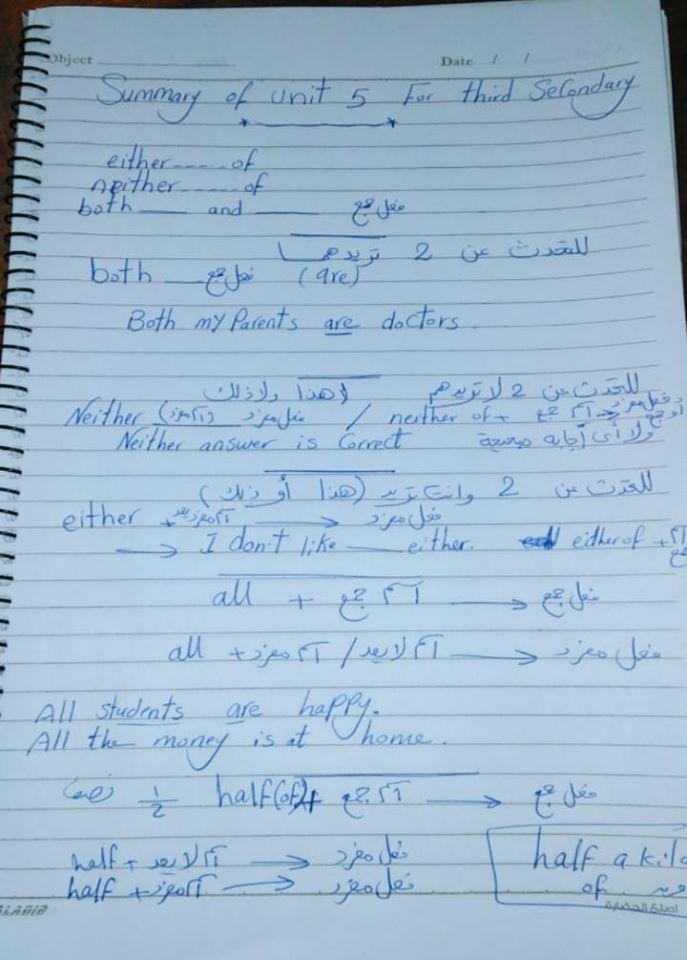 Object
Date / /
Summary of unit 5 For third Secondary
either ...... of
neither ...... of
both ___ and ___ فعل جمع
للتحدث عن 2 تريدهما
both ___ فعل جمع (are)
Both my Parents are doctors.
للتحدث عن 2 لا تريدهم (هذا ولا ذلك)
Neither (اسم مفرد) فعل مفرد / neither of + اسم جمع → فعل مفرد أو جمع
Neither answer is Correct ولا أى أجابه صحيحة
للتحدث عن 2 وانت تريد (هذا أو ذلك)
either + اسم مفرد يعد → فعل مفرد
→ I don't like ___ either. either of + اسم جمع
all + اسم جمع → فعل جمع
all + اسم مفرد / اسم لا يعد → فعل مفرد
All students are happy.
All the money is at home.
نصف 1/2 half (of) + اسم جمع → فعل جمع
half + اسم لا يعد → فعل مفرد
half + اسم مفرد → فعل مفرد
half a kilo
of